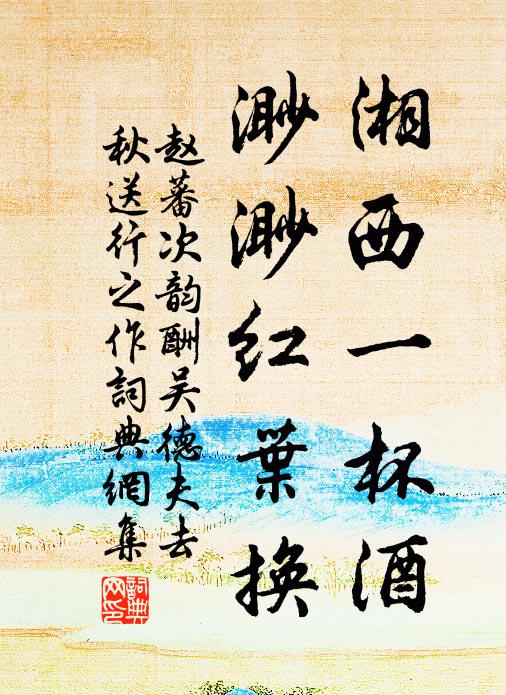 湘西一杯酒
渺渺红葉换
赵蕃次韵酬吴德夫去
秋送行之作詞典網集
詞典網印